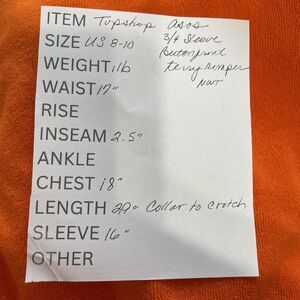 ITEM Topshop asos
SIZE US 8-10 3/4 Sleeve
Button front
WEIGHT 1lb terry romper
WAIST 17" NWT
RISE
INSEAM 2.5"
ANKLE
CHEST 18"
LENGTH 29" Collar to Crotch
SLEEVE 16"
OTHER